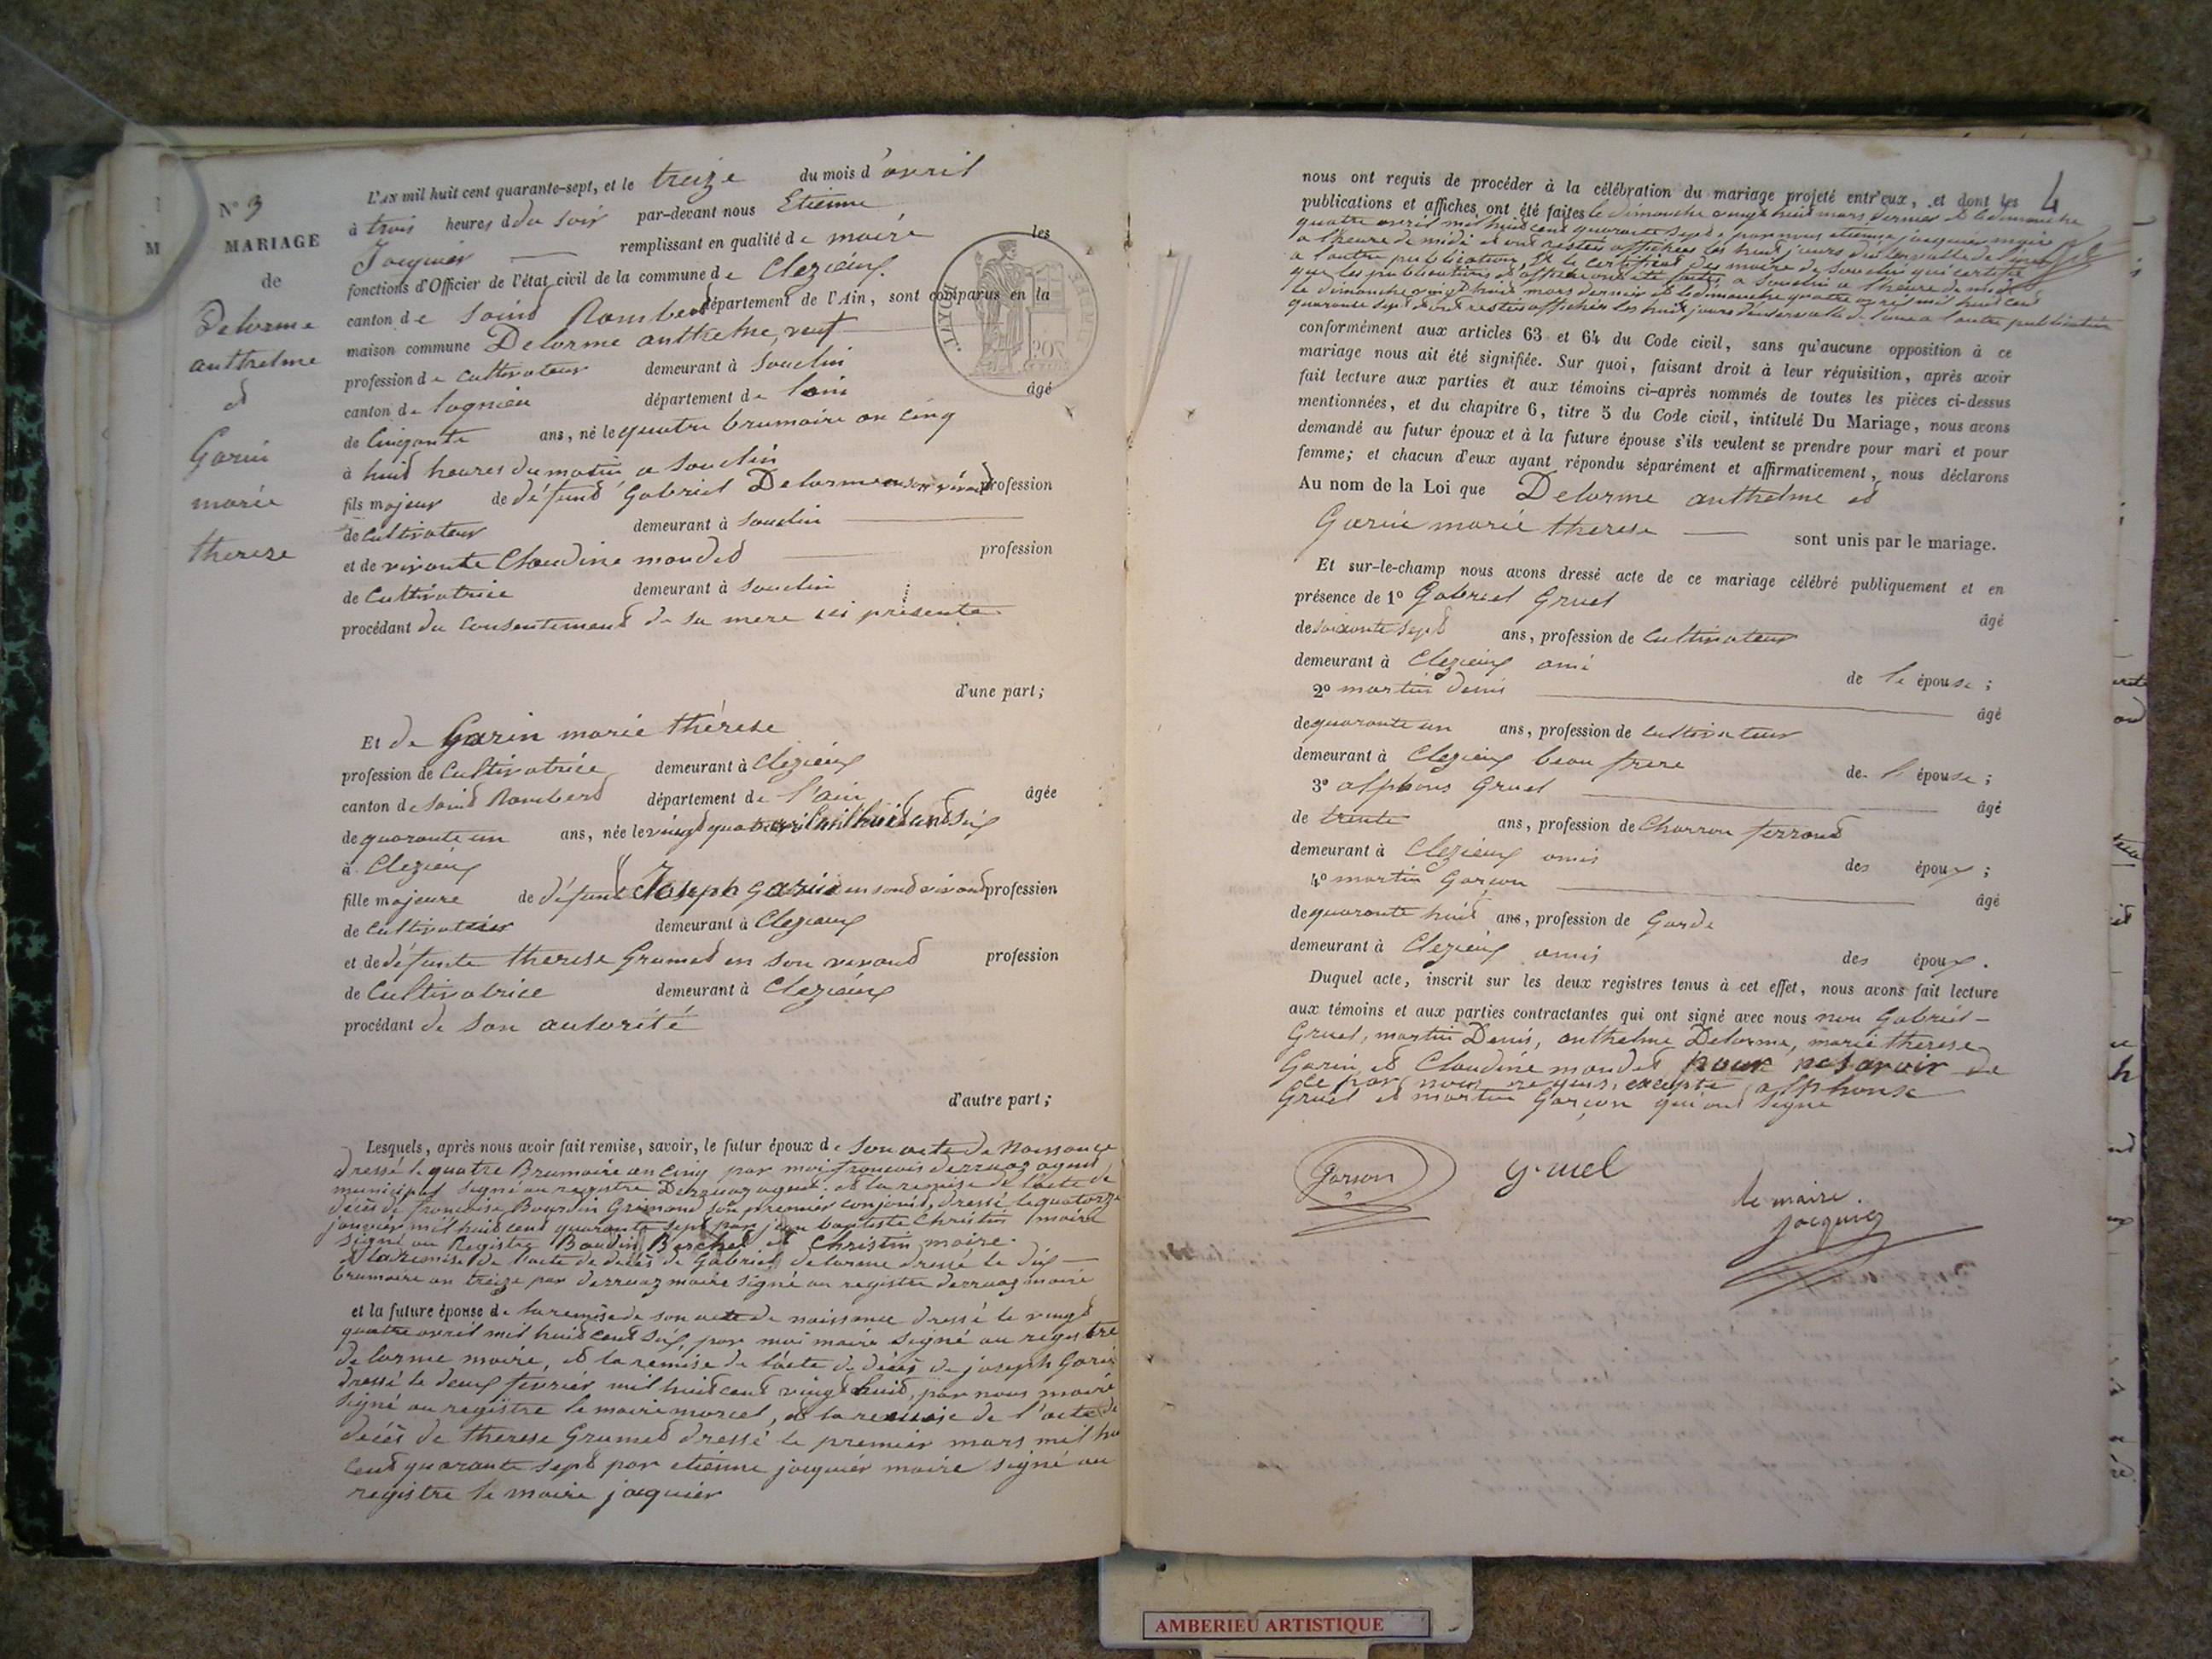 N° 3
MARIAGE
de
Delorme
anthelme
et
Garin
marie
therese
L'AN mil huit cent quarante-sept, et le treize du mois d'avril
à trois heures d du soir par-devant nous Etienne
Jacquier remplissant en qualité de maire les
fonctions d'Officier de l'état civil de la commune de Clezieux
canton de saint Rambert département de l'Ain, sont comparus en la
maison commune Delorme anthelme, veuf
profession de cultivateur demeurant à Souclin
canton de lagnieu département de lain âgé
de Cinqante ans, né le quatre brumaire an cinq
à huit heures du matin a Souclin
fils majeur de défunt Gabriel Delorme en son vivant profession
de Cultivateur demeurant à Souclin
et de vivante Claudine moudet profession
de Cultivatrice demeurant à Souclin
procédant du Consentement de sa mere ici présente
d'une part;
Et de Garin marie thérèse
profession de Cultivatrice demeurant à Clezieux
canton de saint Rambert département de l'ain âgée
de quarante un ans, née le vingt quatre avril mil huit cent six
à Clezieux
fille majeure de défunt Joseph Garin en sont vivant profession
de Cultivateur demeurant à Clezieux
et de défunte therese Grumet en son vivant profession
de Cultivatrice demeurant à Clezieux
procédant de son autorité
d'autre part;
Lesquels, après nous avoir fait remise, savoir, le futur époux de son acte de Naissance
dressé le quatre Brumaire an Cinq par moi francois derruaz agent
municipal signé au registre Derruaz agent. et la remise de l'acte de
décès de francoise Bourdin Grimand son premier conjoint, dressé le quatorze
janvier mil huit cent quarante sept par jean baptiste Christin maire
signé au Registre Baudin Berchet et Christin maire.
et la remise de l'acte de décès de Gabriel delorme dressé le dix
brumaire an treize par derruaz maire signé au registre derruaz maire
et la future épouse de la remise de son acte de naissance dressé le vingt
quatre avril mil huit cent six, par moi maire signé au registre
delorme maire, et la remise de l'acte de décès de joseph Garin
dressé le deux fevrier mil huit cent vingt huit, par nous maire
signé au registre le maire marcel, et la remise de l'acte de
décès de therese Grumet dressé le premier mars mil hu
cent quarante sept par etienne jacquier maire signé au
registre le maire jacquier
4
nous ont requis de procéder à la célébration du mariage projeté entr'eux, et dont les
publications et affiches ont été faites le dimanche vingt huit mars dernier et le dimanche
quatre avril mil huit cent quarante sept, par nous etienne jacquier maire
a l'heure de midi et ont restées affichées les huit jours d'intervalle de l'une
a l'autre publication, et le certificat du maire de Souclin qui certifie
que les publications et affiches ont été faites a Souclin a l'heure de midi
le dimanche vingt huit mars dernier et le dimanche quatre avril mil huit cent
quarante sept et ont restées affichées les huit jours d'intervalle de l'une a l'autre publication
conformément aux articles 63 et 64 du Code civil, sans qu'aucune opposition à ce
mariage nous ait été signifiée. Sur quoi, faisant droit à leur réquisition, après avoir
fait lecture aux parties et aux témoins ci-après nommés de toutes les pièces ci-dessus
mentionnées, et du chapitre 6, titre 5 du Code civil, intitulé Du Mariage, nous avons
demandé au futur époux et à la future épouse s'ils veulent se prendre pour mari et pour
femme; et chacun d'eux ayant répondu séparément et affirmativement, nous déclarons
Au nom de la Loi que Delorme anthelme et
Garin marie therese sont unis par le mariage.
Et sur-le-champ nous avons dressé acte de ce mariage célébré publiquement et en
présence de 1° Gabriel Gruel âgé
de soixante sept ans, profession de Cultivateur
demeurant à Clezieux ami de l'épouse;
2° martin denis âgé
de quarante un ans, profession de cultivateur
demeurant à Clezieux beau frere de l'épouse;
3° alphons Gruel âgé
de trente ans, profession de Charron ferrand
demeurant à Clezieux amis des époux;
4° martin Garçon âgé
de quarante huit ans, profession de Garde
demeurant à Clezieux amis des époux.
Duquel acte, inscrit sur les deux registres tenus à cet effet, nous avons fait lecture
aux témoins et aux parties contractantes qui ont signé avec nous non Gabriel
Gruel, martin Denis, anthelme Delorme, marie therese
Garin et Claudine moudet pour ne savoir de
ce par nous requis, excepté alphonse
Gruel et martin Garçon qui ont signé
Garson
gruel
le maire.
jacquier
AMBERIEU ARTISTIQUE